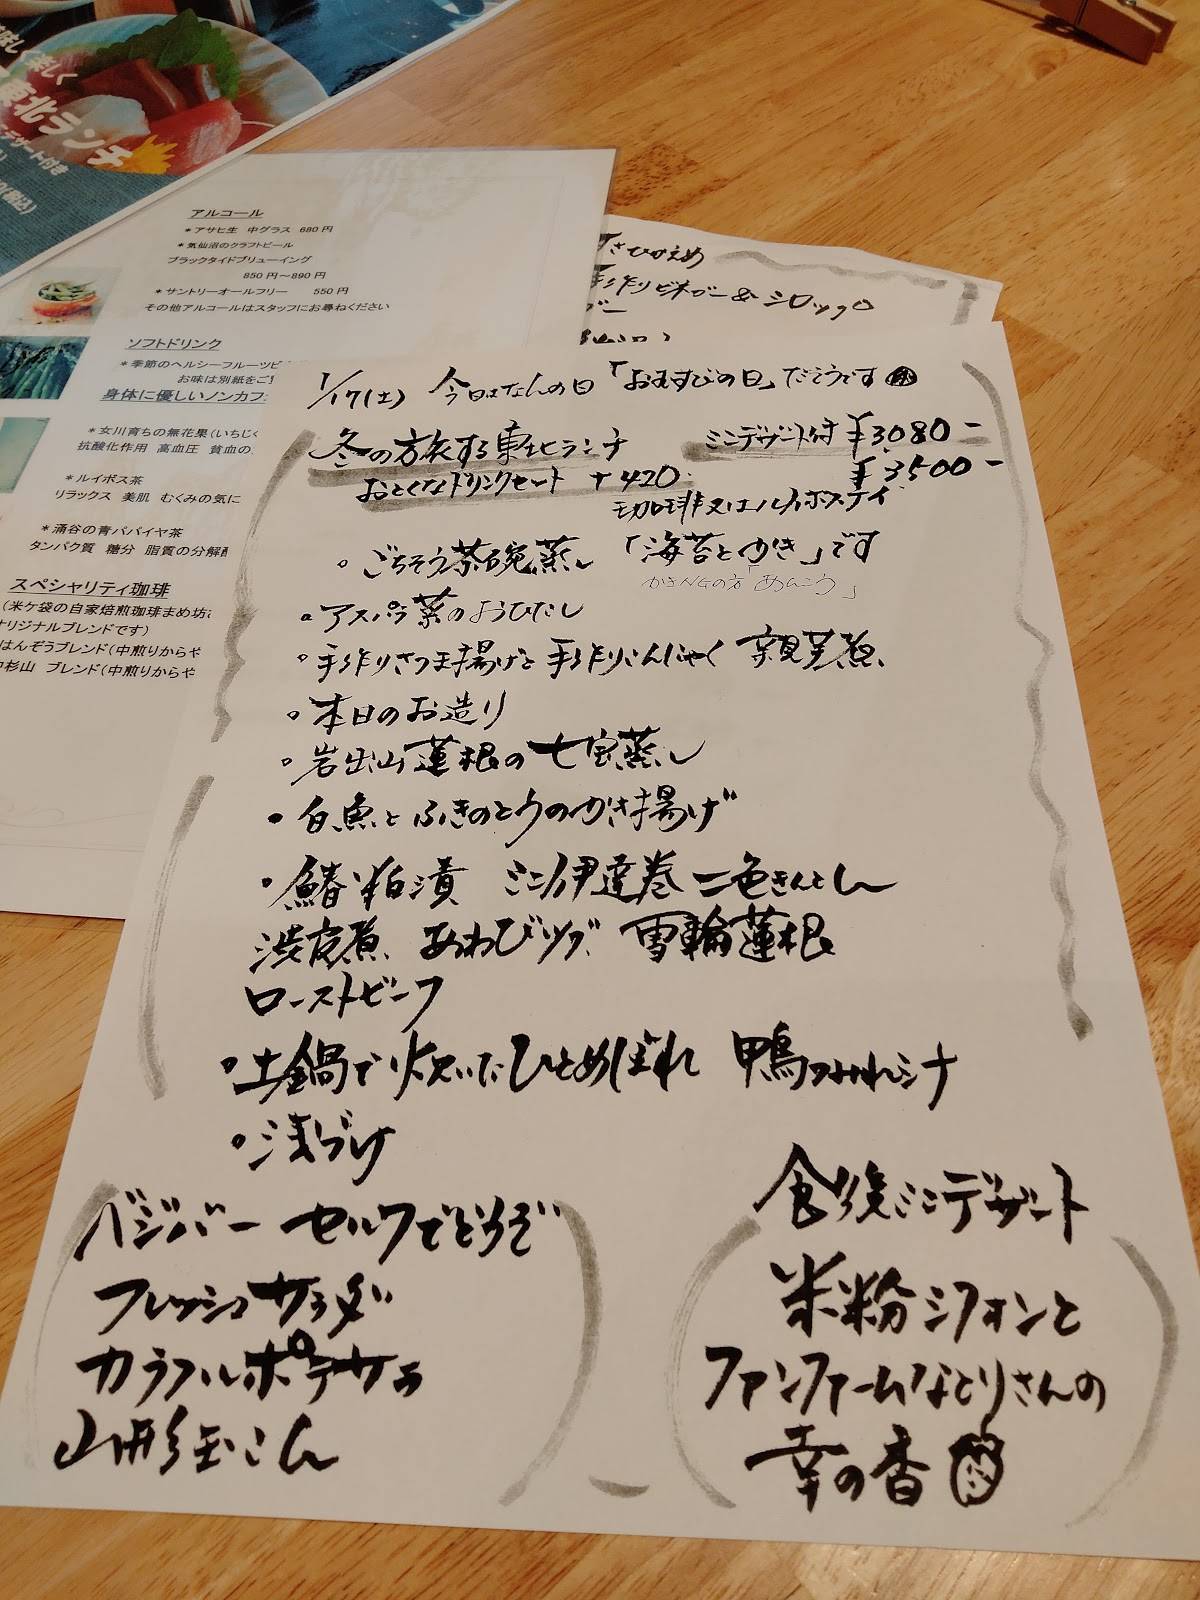 味しく楽しく
東北ランチ
デザート付き
(税込)
アルコール
*アサヒ生 中グラス 680円
*気仙沼のクラフトビール
ブラックタイドブリューイング
850円～890円
*サントリーオールフリー 550円
その他アルコールはスタッフにお尋ねください
ソフトドリンク
*季節のヘルシーフルーツビ
お味は別紙をご
身体に優しいノンカフ
*女川育ちの無花果(いちじく
抗酸化作用 高血圧 貧血の
*ルイボス茶
リラックス 美肌 むくみの気に
*涌谷の青パパイヤ茶
タンパク質 糖分 脂質の分解
スペシャリティ珈琲
(米ケ袋の自家焙煎珈琲まめ坊
オリジナルブレンドです)
はんぞうブレンド(中煎りからや
杉山 ブレンド(中煎りからや
手作りビネガー&シロップ
1/17(土) 今日はなんの日「おむすびの日」だそうです
冬の旅する東北ランチ ミニデザート付 ¥3080-
おとくなドリンクセット +420- ¥3500-
珈琲又はルイボスティ
。ごちそう茶碗蒸し 「海苔とかき」です
かきNGの方「あんこう」
。アスパラ菜のおひたし
。手作りさつま揚げと手作りこんにゃく 親芋煮
。本日のお造り
。岩出山蓮根の七宝蒸し
・白魚とふきのとうのかき揚げ
・鰆粕漬 ミニ伊達巻 二色きんとん
渋皮煮 あわびツブ 雪輪蓮根
ローストビーフ
・土鍋で炊いたひとめぼれ 鴨つみれシチ
・浅づけ
ベジバー セルフでどうぞ
フレッシュサラダ
カラフルポテサラ
山形玉こん
食後ミニデザート
米粉シフォンと
ファンファームなとりさんの
幸の香